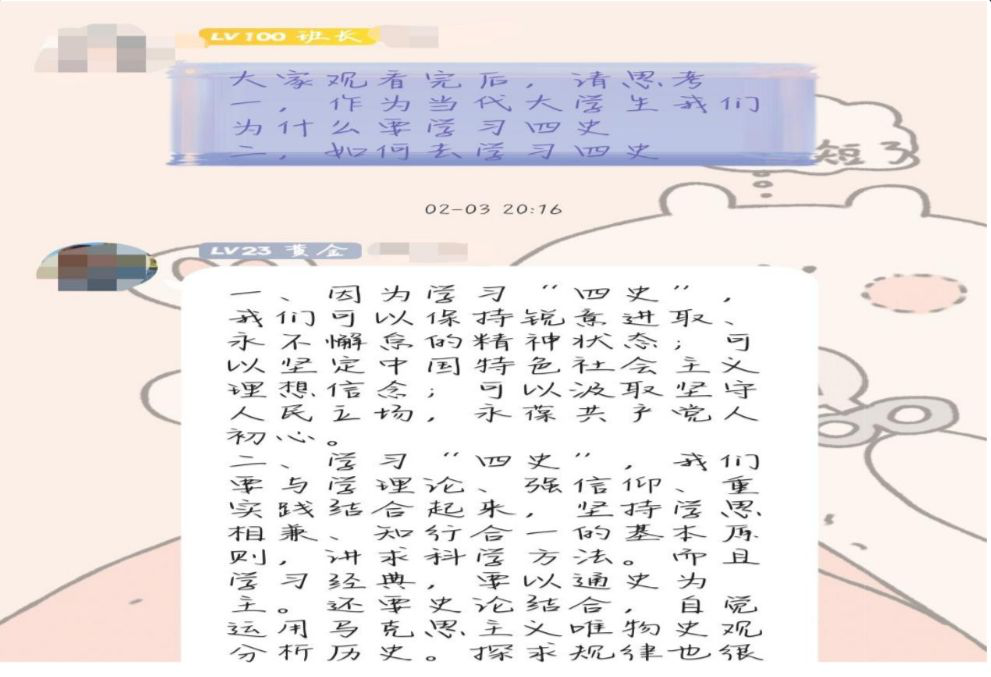 LV100 班长
大家观看完后，请思考
一，作为当代大学生我们
为什么要学习四史
二，如何去学习四史
短了
02-03 20:16
LV23 黄金
一、因为学习“四史”，
我们可以保持锐意进取、
永不懈怠的精神状态；可
以坚定中国特色社会主义
理想信念；可以汲取坚守
人民立场，永葆共产党人
初心。
二、学习“四史”，我们
要与学理论、强信仰、重
实践结合起来，坚持学思
相兼、知行合一的基本原
则，讲求科学方法。而且
学习经典，要以通史为
主。还要史论结合，自觉
运用马克思主义唯物史观
分析历史。探求规律也很